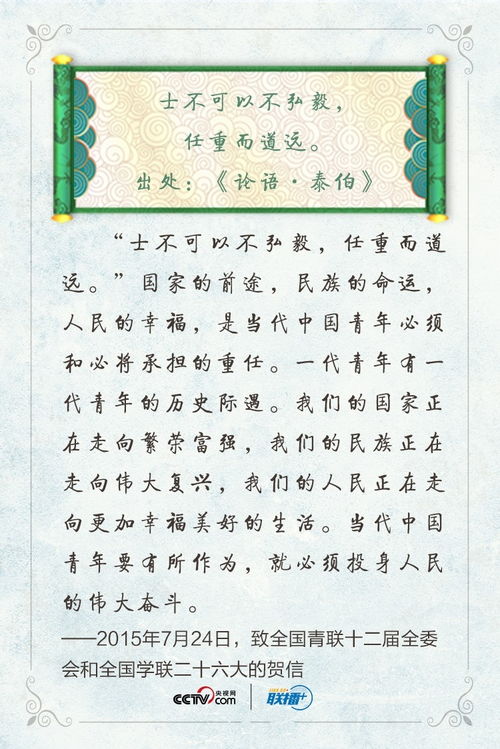 士不可以不弘毅，
任重而道远。
出处：《论语·泰伯》
“士不可以不弘毅，任重而道
远。”国家的前途，民族的命运，
人民的幸福，是当代中国青年必须
和必将承担的重任。一代青年有一
代青年的历史际遇。我们的国家正
在走向繁荣富强，我们的民族正在
走向伟大复兴，我们的人民正在走
向更加幸福美好的生活。当代中国
青年要有所作为，就必须投身人民
的伟大奋斗。
——2015年7月24日，致全国青联十二届全委
会和全国学联二十六大的贺信
CCTV.com 央视网 联播+